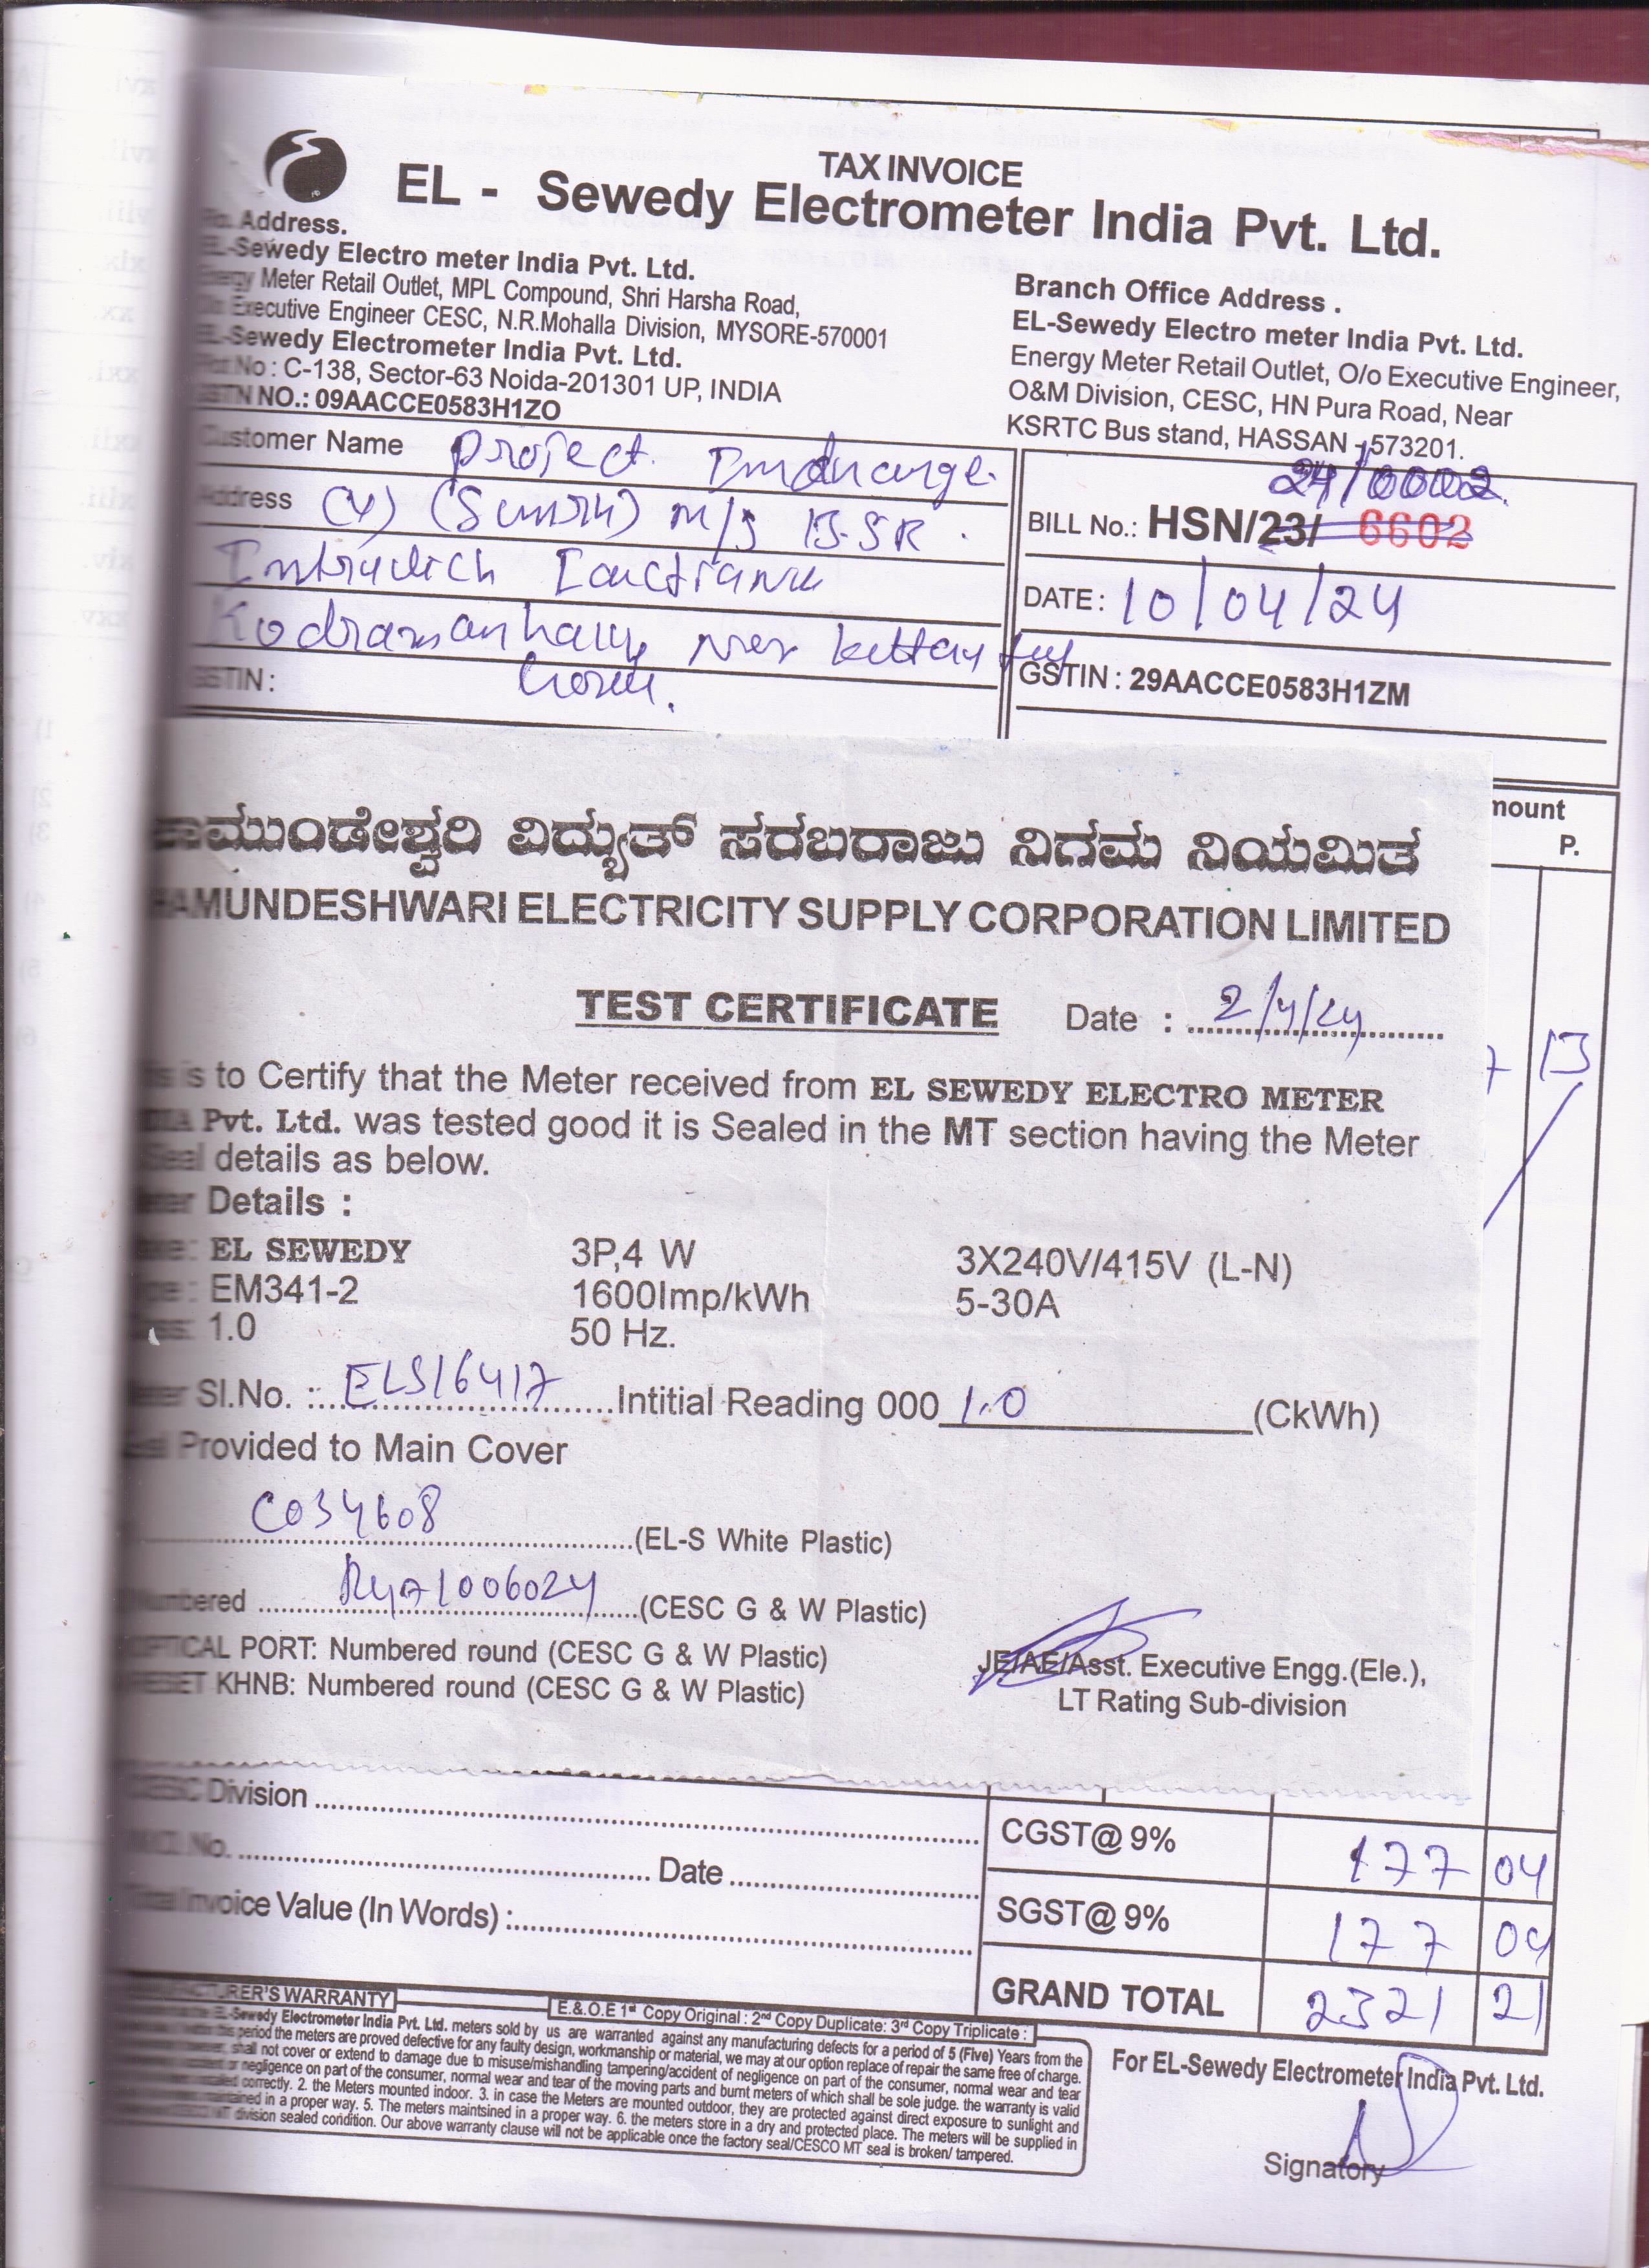 TAX INVOICE
EL - Sewedy Electrometer India Pvt. Ltd.
Address.
EL-Sewedy Electro meter India Pvt. Ltd.
Energy Meter Retail Outlet, MPL Compound, Shri Harsha Road,
Executive Engineer CESC, N.R.Mohalla Division, MYSORE-570001
EL-Sewedy Electrometer India Pvt. Ltd.
Plot No : C-138, Sector-63 Noida-201301 UP, INDIA
GSTN NO.: 09AACCE0583H1ZO
Branch Office Address .
EL-Sewedy Electro meter India Pvt. Ltd.
Energy Meter Retail Outlet, O/o Executive Engineer,
O&M Division, CESC, HN Pura Road, Near
KSRTC Bus stand, HASSAN - 573201.
Customer Name Project
Address M/s
GSTIN :
24/0002
BILL No.: HSN/23/ 6602
DATE : 10/04/24
GSTIN : 29AACCE0583H1ZM
mount
P.
7 13
ಚಾಮುಂಡೇಶ್ವರಿ ವಿದ್ಯುತ್ ಸರಬರಾಜು ನಿಗಮ ನಿಯಮಿತ
HAMUNDESHWARI ELECTRICITY SUPPLY CORPORATION LIMITED
TEST CERTIFICATE Date : 2/4/24
is to Certify that the Meter received from EL SEWEDY ELECTRO METER
Pvt. Ltd. was tested good it is Sealed in the MT section having the Meter
Seal details as below.
Details :
EL SEWEDY 3P,4 W 3X240V/415V (L-N)
: EM341-2 1600Imp/kWh 5-30A
: 1.0 50 Hz.
Sl.No. : ELS16417 Intitial Reading 000 1.0 (CkWh)
Provided to Main Cover
C034608 (EL-S White Plastic)
Numbered (CESC G & W Plastic)
OPTICAL PORT: Numbered round (CESC G & W Plastic)
RESET KHNB: Numbered round (CESC G & W Plastic)
JE/AE/Asst. Executive Engg.(Ele.),
LT Rating Sub-division
CESC Division
No. Date
Total Invoice Value (In Words) :
CGST@ 9% 177 04
SGST@ 9% 177 04
GRAND TOTAL 2321 21
MANUFACTURER'S WARRANTY
E.&.O.E 1st Copy Original : 2nd Copy Duplicate: 3rd Copy Triplicate :
EL-Sewedy Electrometer India Pvt. Ltd. meters sold by us are warranted against any manufacturing defects for a period of 5 (Five) Years from the
period the meters are proved defective for any faulty design, workmanship or material, we may at our option replace of repair the same free of charge.
shall not cover or extend to damage due to misuse/mishandling tampering/accident of negligence on part of the consumer, normal wear and tear
or negligence on part of the consumer, normal wear and tear of the moving parts and burnt meters of which shall be sole judge. the warranty is valid
correctly. 2. the Meters mounted indoor. 3. in case the Meters are mounted outdoor, they are protected against direct exposure to sunlight and
in a proper way. 5. The meters maintsined in a proper way. 6. the meters store in a dry and protected place. The meters will be supplied in
MT division sealed condition. Our above warranty clause will not be applicable once the factory seal/CESCO MT seal is broken/ tampered.
For EL-Sewedy Electrometer India Pvt. Ltd.
Signatory